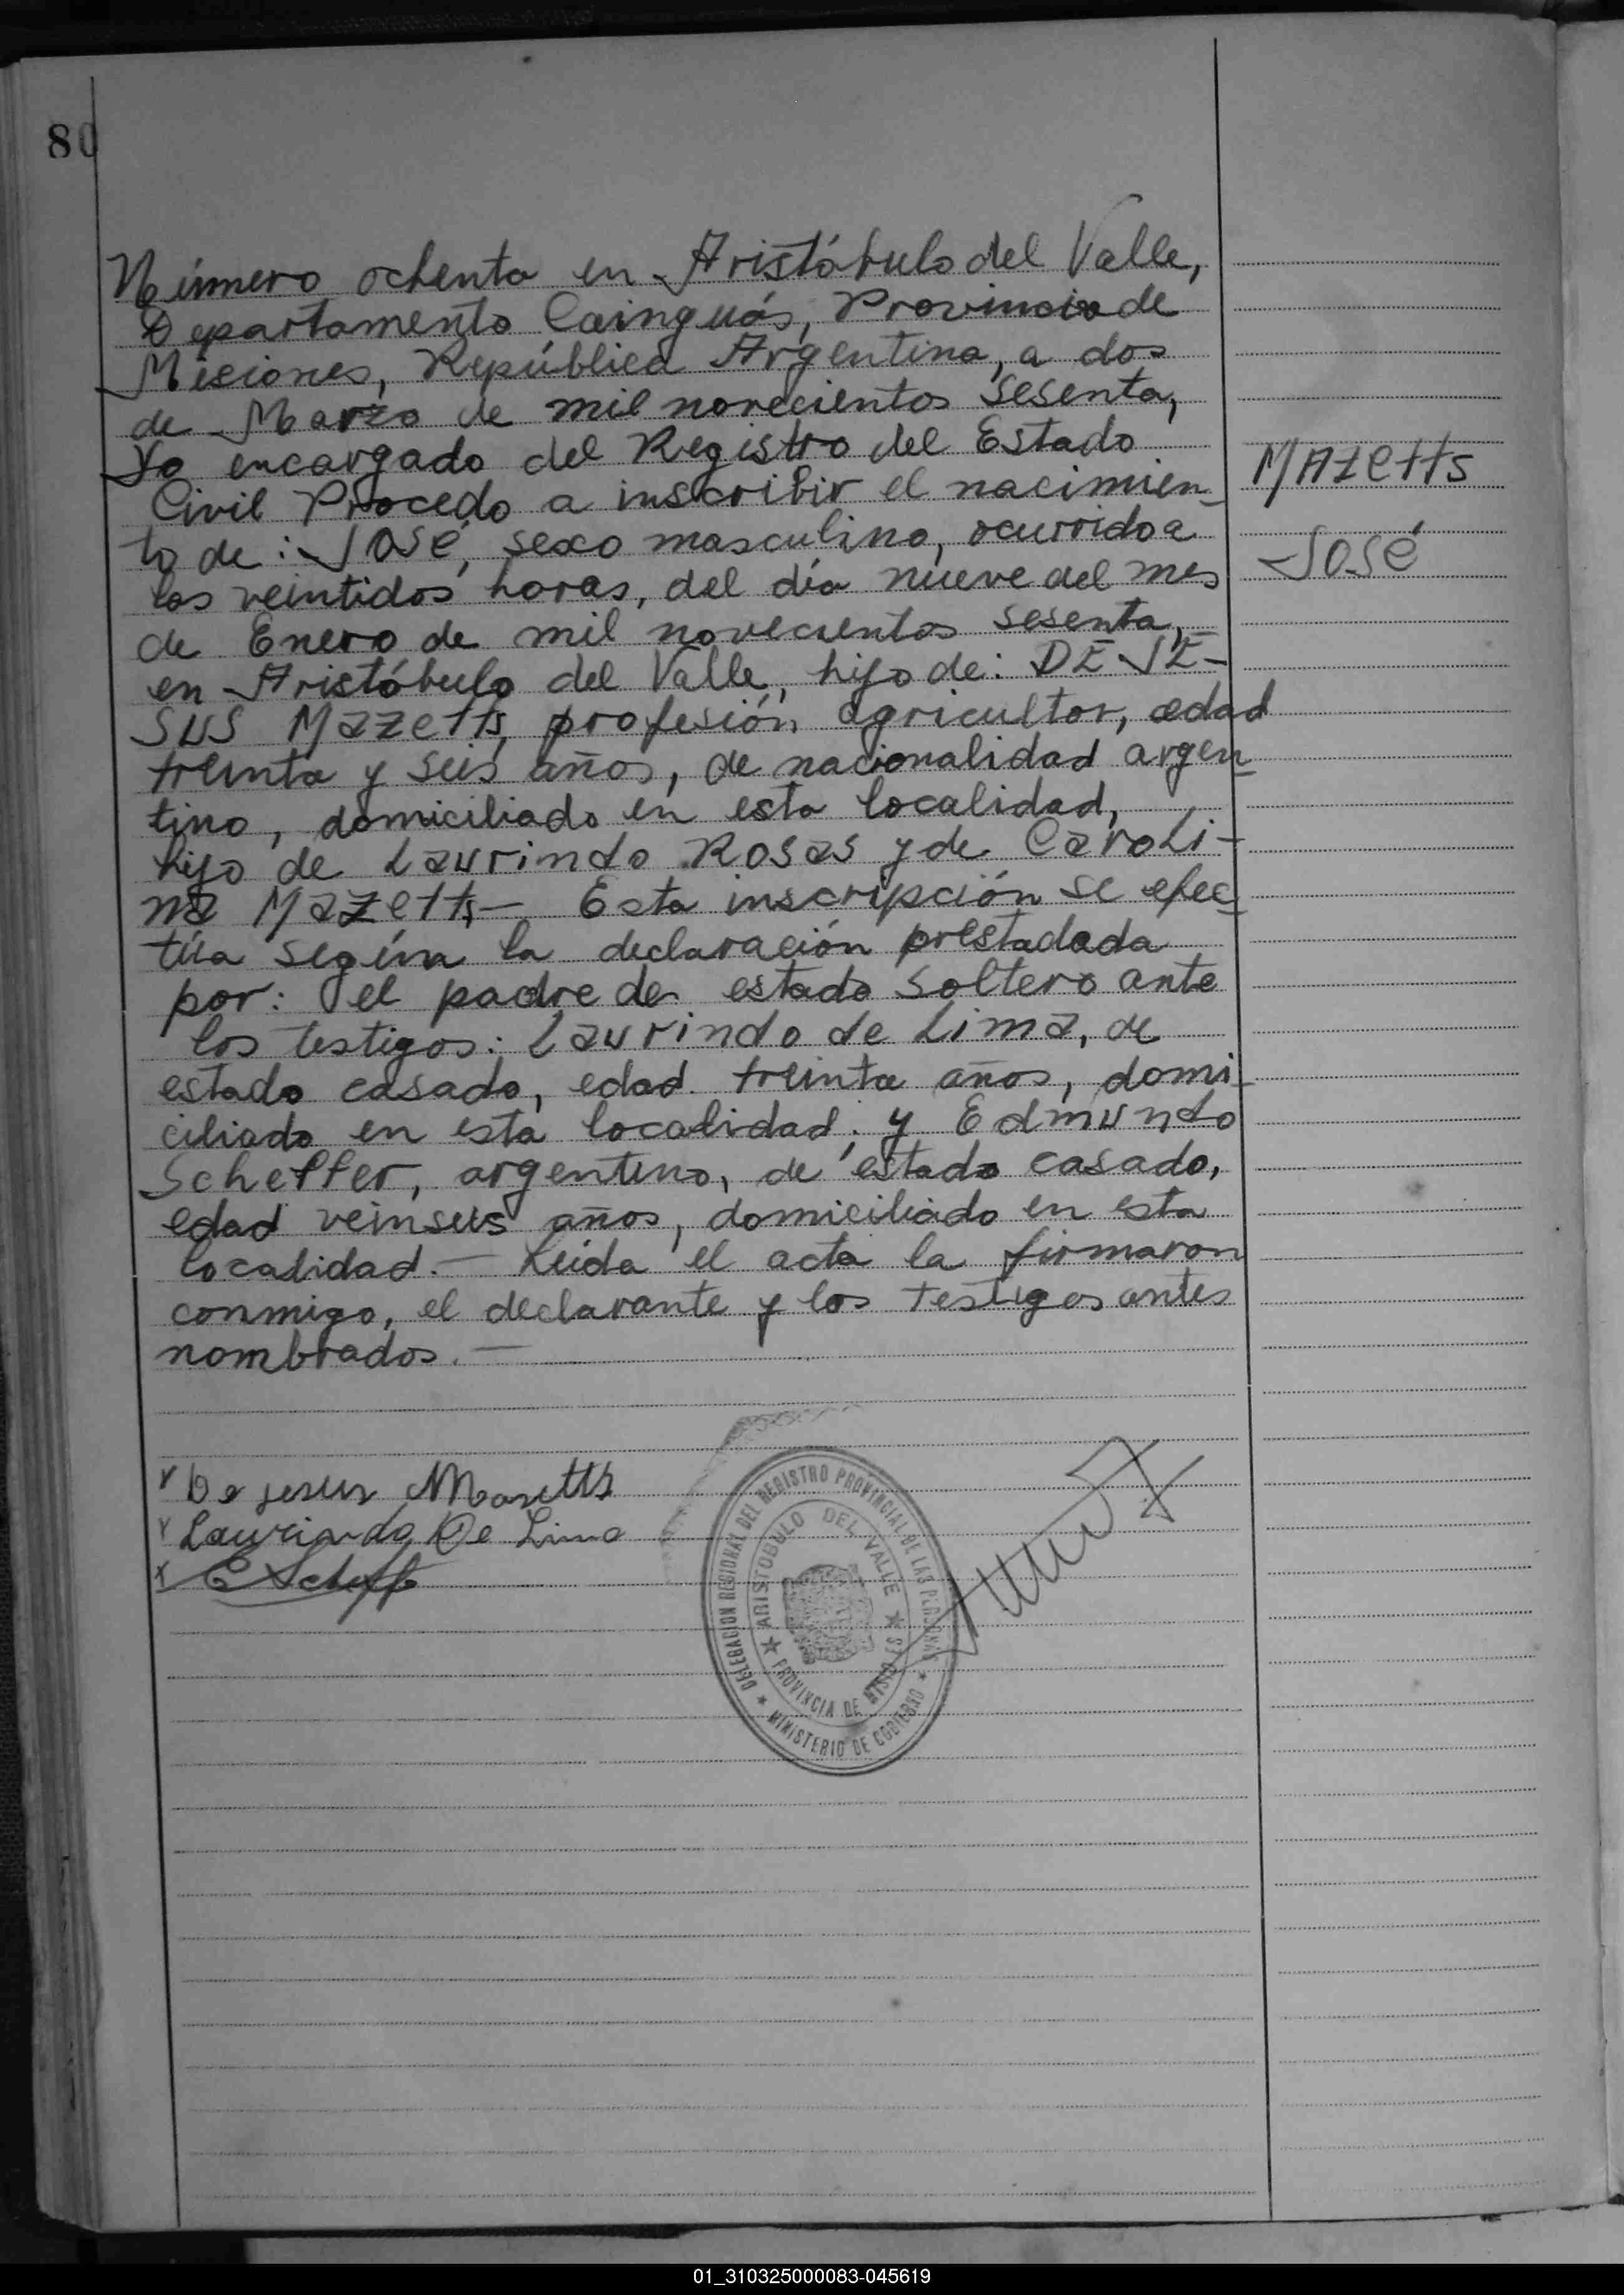 80
Número ochenta en Aristóbulo del Valle,
Departamento Cainguás, Provincia de
Misiones, República Argentina, a dos
de Marzo de mil novecientos sesenta,
Yo encargado del Registro del Estado
Civil Procedo a inscribir el nacimien-
to de: José, sexo masculino, ocurrido a
las veintidos horas, del día nueve del mes
de Enero de mil novecientos sesenta,
en Aristóbulo del Valle, hijo de: DE JE-
SUS Mazetts, profesión agricultor, edad
treinta y seis años, de nacionalidad argen-
tino, domiciliado en esta localidad,
hijo de Laurindo Rosas y de Caroli-
na Mazetts — Esta inscripción se efec-
túa según la declaración prestadada
por: el padre de estado soltero ante
los testigos: Laurindo de Lima, de
estado casado, edad treinta años, domi-
ciliado en esta localidad; y Edmundo
Scheffer, argentino, de estado casado,
edad veinseis años, domiciliado en esta
localidad. — Leída el acta la firmaron
conmigo, el declarante y los testigos antes
nombrados. —
MAZETTS
José
De jesus Mazetts
Laurindo De Lima
DELEGACION REGIONAL DEL REGISTRO PROVINCIAL DE LAS PERSONAS
★ MINISTERIO DE GOBIERNO ★
ARISTOBULO DEL VALLE
★ PROVINCIA DE MISIONES ★
01_310325000083-045619